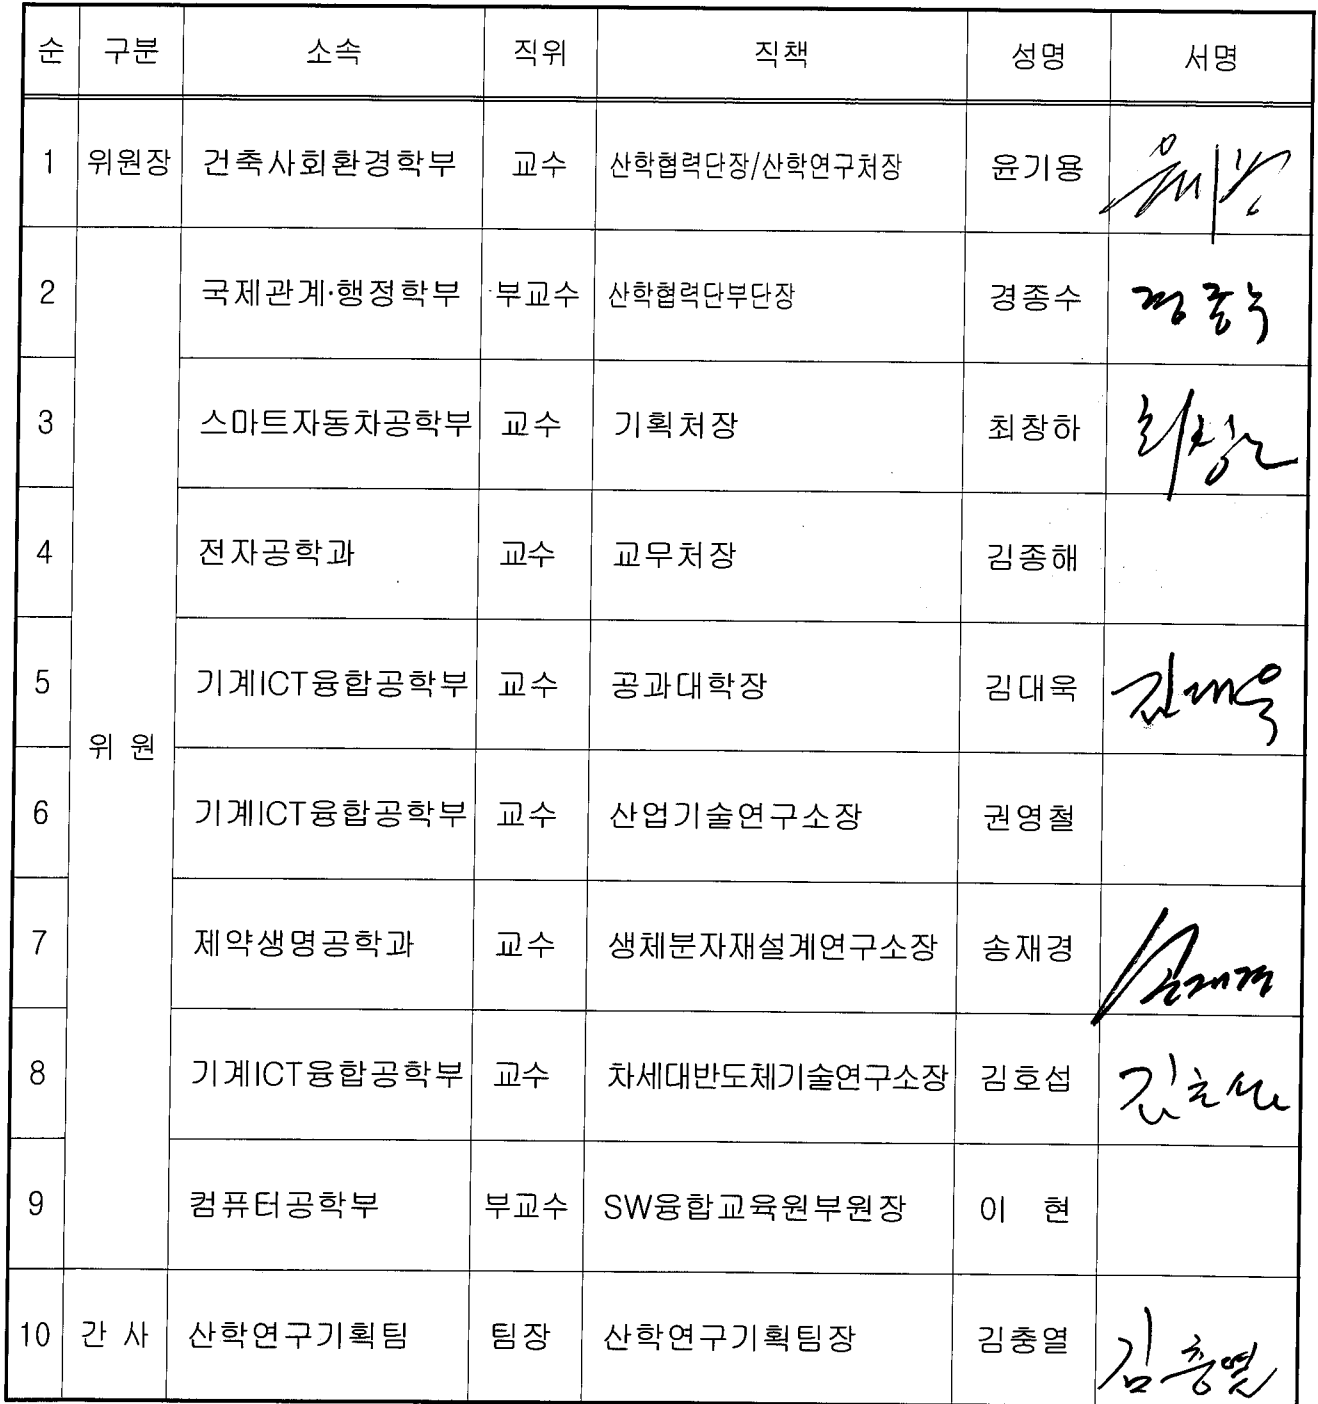 순 구분 소속 직위 직책 성명 서명
1 위원장 건축사회환경학부 교수 산학협력단장/산학연구처장 윤기용
2 국제관계·행정학부 부교수 산학협력단부단장 경종수 경종수
3 스마트자동차공학부 교수 기획처장 최창하 최창하
4 전자공학과 교수 교무처장 김종해
5 기계ICT융합공학부 교수 공과대학장 김대욱 김대욱
위 원
6 기계ICT융합공학부 교수 산업기술연구소장 권영철
7 제약생명공학과 교수 생체분자재설계연구소장 송재경 송재경
8 기계ICT융합공학부 교수 차세대반도체기술연구소장 김호섭 김호섭
9 컴퓨터공학부 부교수 SW융합교육원부원장 이 현
10 간 사 산학연구기획팀 팀장 산학연구기획팀장 김충열 김충열